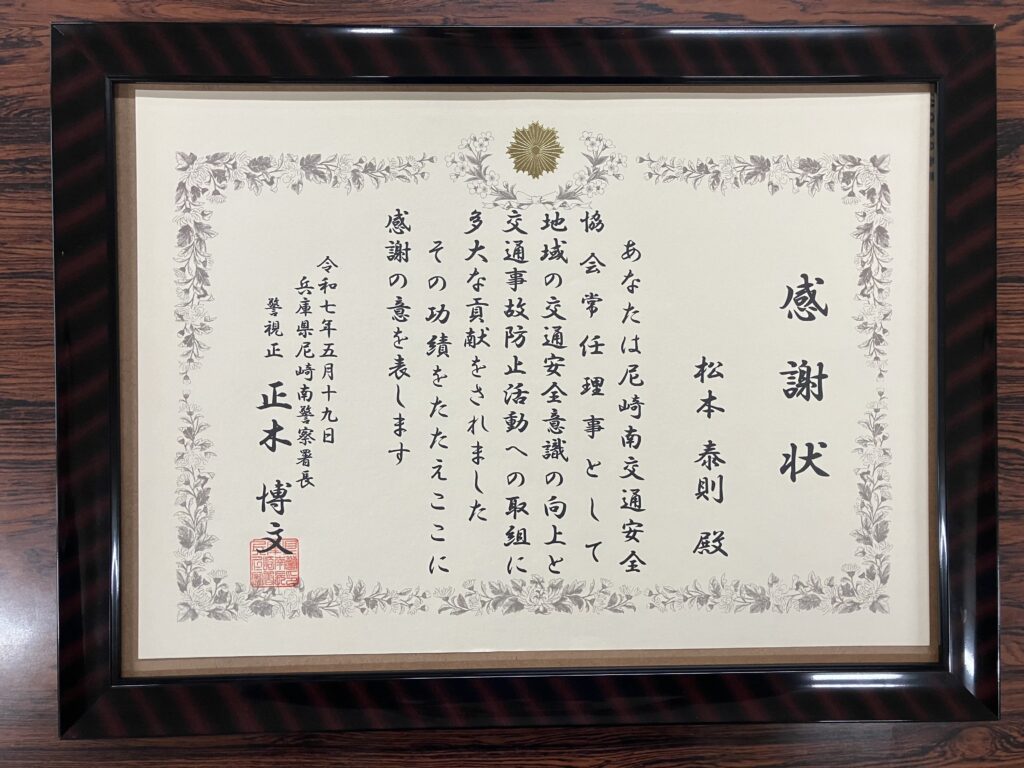 感謝状
松本泰則 殿
あなたは尼崎南交通安全
協会常任理事として
地域の交通安全意識の向上と
交通事故防止活動への取組に
多大な貢献をされました
その功績をたたえここに
感謝の意を表します
令和七年五月十九日
兵庫県尼崎南警察署長
警視正 正木 博文